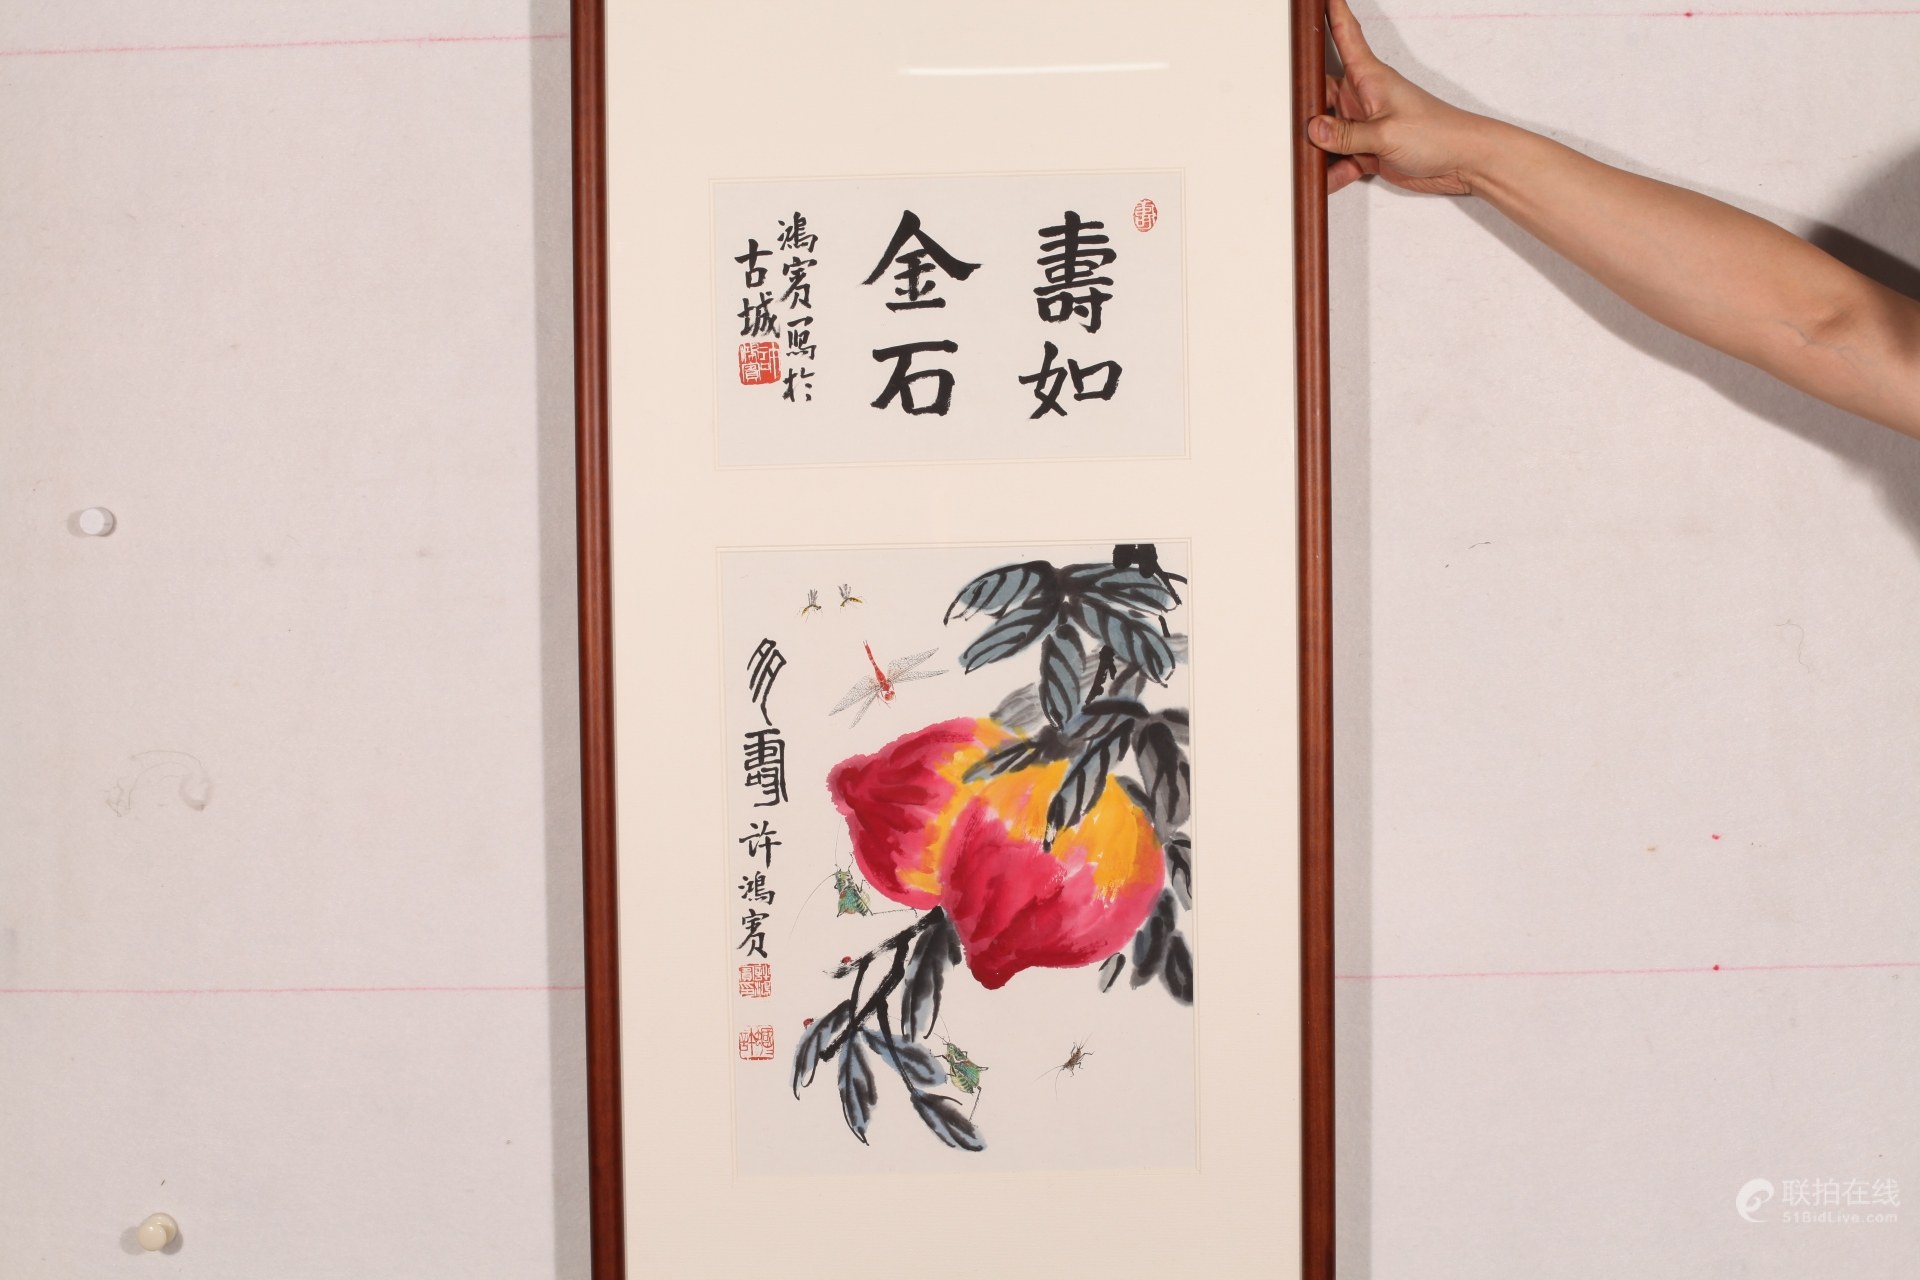 壽如
金石
鴻賓寫於
古城
多壽
许鴻賓
联拍在线
51BidLive.com